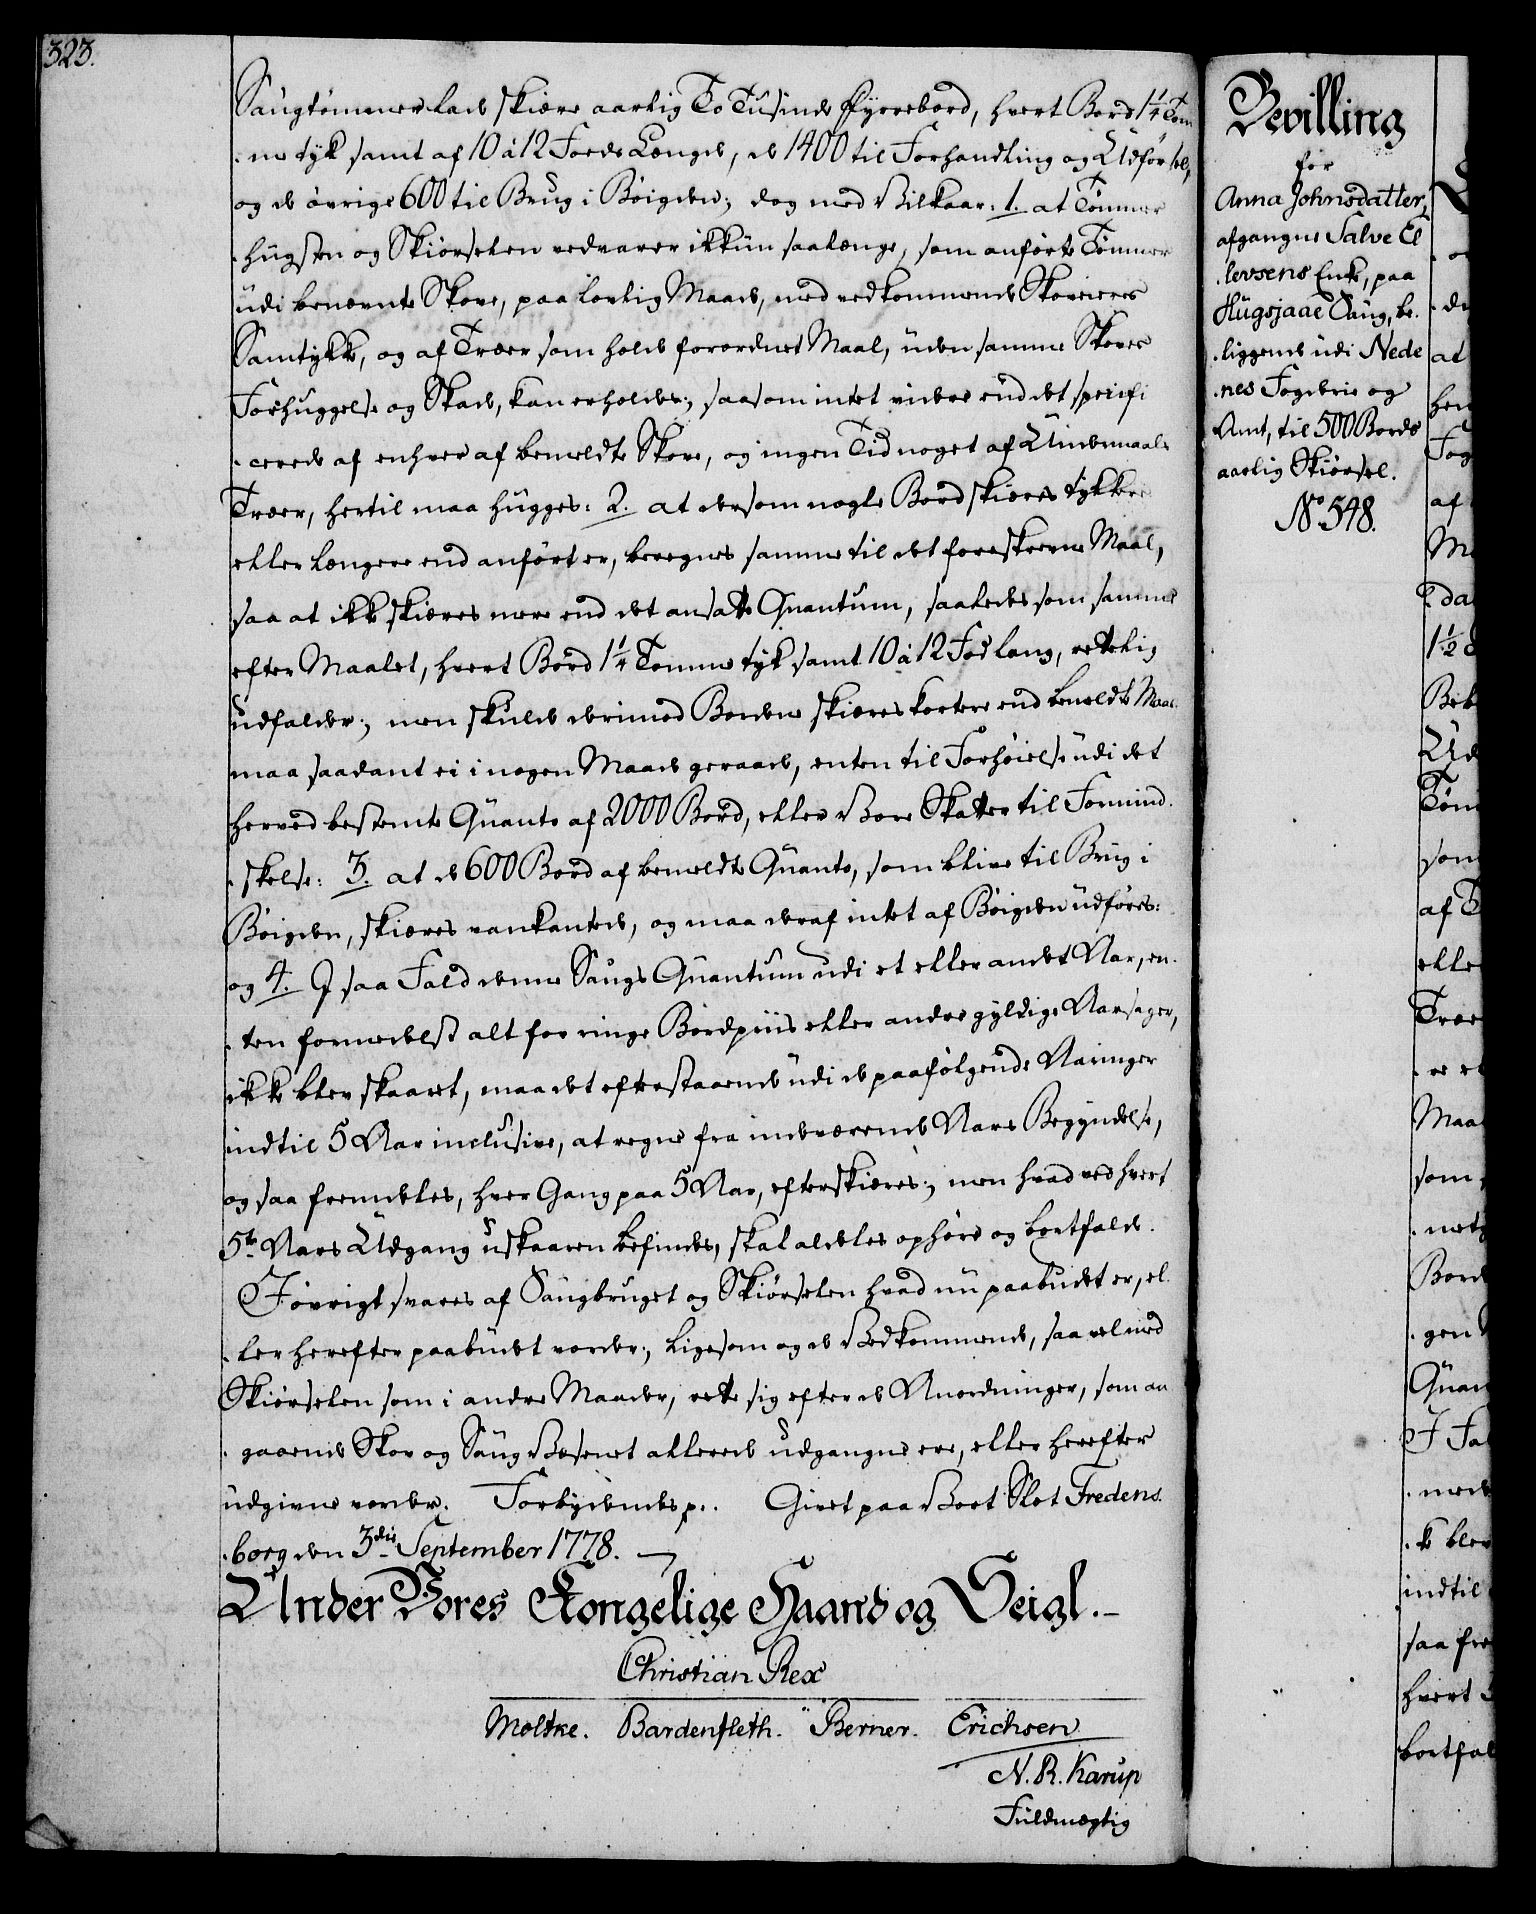 323.
Saugtømmer lade skiære aarlig To Tusinde Fyrrebord, hvert Bord 1¼ Tom
. me tyk samt af 10 à 12 Foeds Længde, de 1400 til Forhandling og Udførsel,
og de øvrige 600 til Brug i Bøigden; dog med Vilkaar: 1. at Tømmer
. hugsten og Skiørselen vedvarer ikkun saalænge, som anførte Tømmer
udi benævnte Skove, paa lovlig Maade, med vedkommende Skoveieres
Samtykke, og af Træer som holde forordnet Maal, uden samme Skoves
Forhuggelse og Skade, kan erholdes; saasom intet videre end det specifi
. cerede af enhver af bemeldte Skove, og ingen Tid noget af Undermaals
Træer, hertil maa hugges: 2. at dersom nogle Bord skiæres tykkere
eller længere end anført er, beregnes samme til det foreskrevne Maal,
saa at ikke skiæres mere end det ansatte Quantum, saaledes som samme
efter Maalet, hvert Bord 1¼ Tomme tyk samt 10 à 12 Fod lang, rettelig
udfalder; men skulde derimod Bordene skiæres kortere end bemeldte Maal.
maa saadant ei i nogen Maade geraade, enten til Forhøielse udi det
herved bestemte Quanto af 2000 Bord, eller Vore Skatter til Formind.
. skelse: 3. at de 600 Bord af bemeldte Quanto, som blive til Brug i
Bøigden, skiæres vankantede, og maa deraf intet af Bøigden udføres:
og 4. I saa Fald denne Saugs Quantum udi et eller andet Aar, en.
. ten formedelst alt for ringe Bordpriis eller andre gyldige Aarsager,
ikke blev skaaret, maa det efterstaaende udi de paafølgende Aaringer
indtil 5 Aar inclusive, at regne fra indeværende Aars Begyndelse,
og saa fremdeles, hver Gang paa 5 Aar, efterskiæres; men hvad ved hvert
5te Aars Udgang uskaaren befindes, skal aldeles ophøre og bortfalde.
Iøvrigt svares af Saugbruget og Skiørselen hvad nu paabudet er, el.
. ler herefter paabudet vorder; ligesom og de Vedkommende, saavel med
Skiørselen som i andre Maader, rette sig efter de Anordninger, som an
. gaaende Skov og Saug Væsenet allerede udgangne ere, eller herefter
udgivne vorder. Forbydendes p. Givet paa Vort Slot Fredens.
. borg den 3die September 1778.
Under Vores Kongelige Haand og Seigl. –
Christian Rex
Moltke. Bardenfleth. Berner. Erichsen
N. R. Karup
Fuldmægtig
Bevilling
for
Anna Johnsdatter,
afgangne Salve El
. levsens Enke, paa
Hugsjaae Saug, be.
. liggende udi Nede
. nes Fogderie og
Amt, til 500 Bords
aarlig Skiørsel.
No 548.
at
af
1½
Tøm
som
af
elle
Træe
Maa
som
Bord
. gen
Quan
I Fal
indtil
saa fre
hvert
bortfal